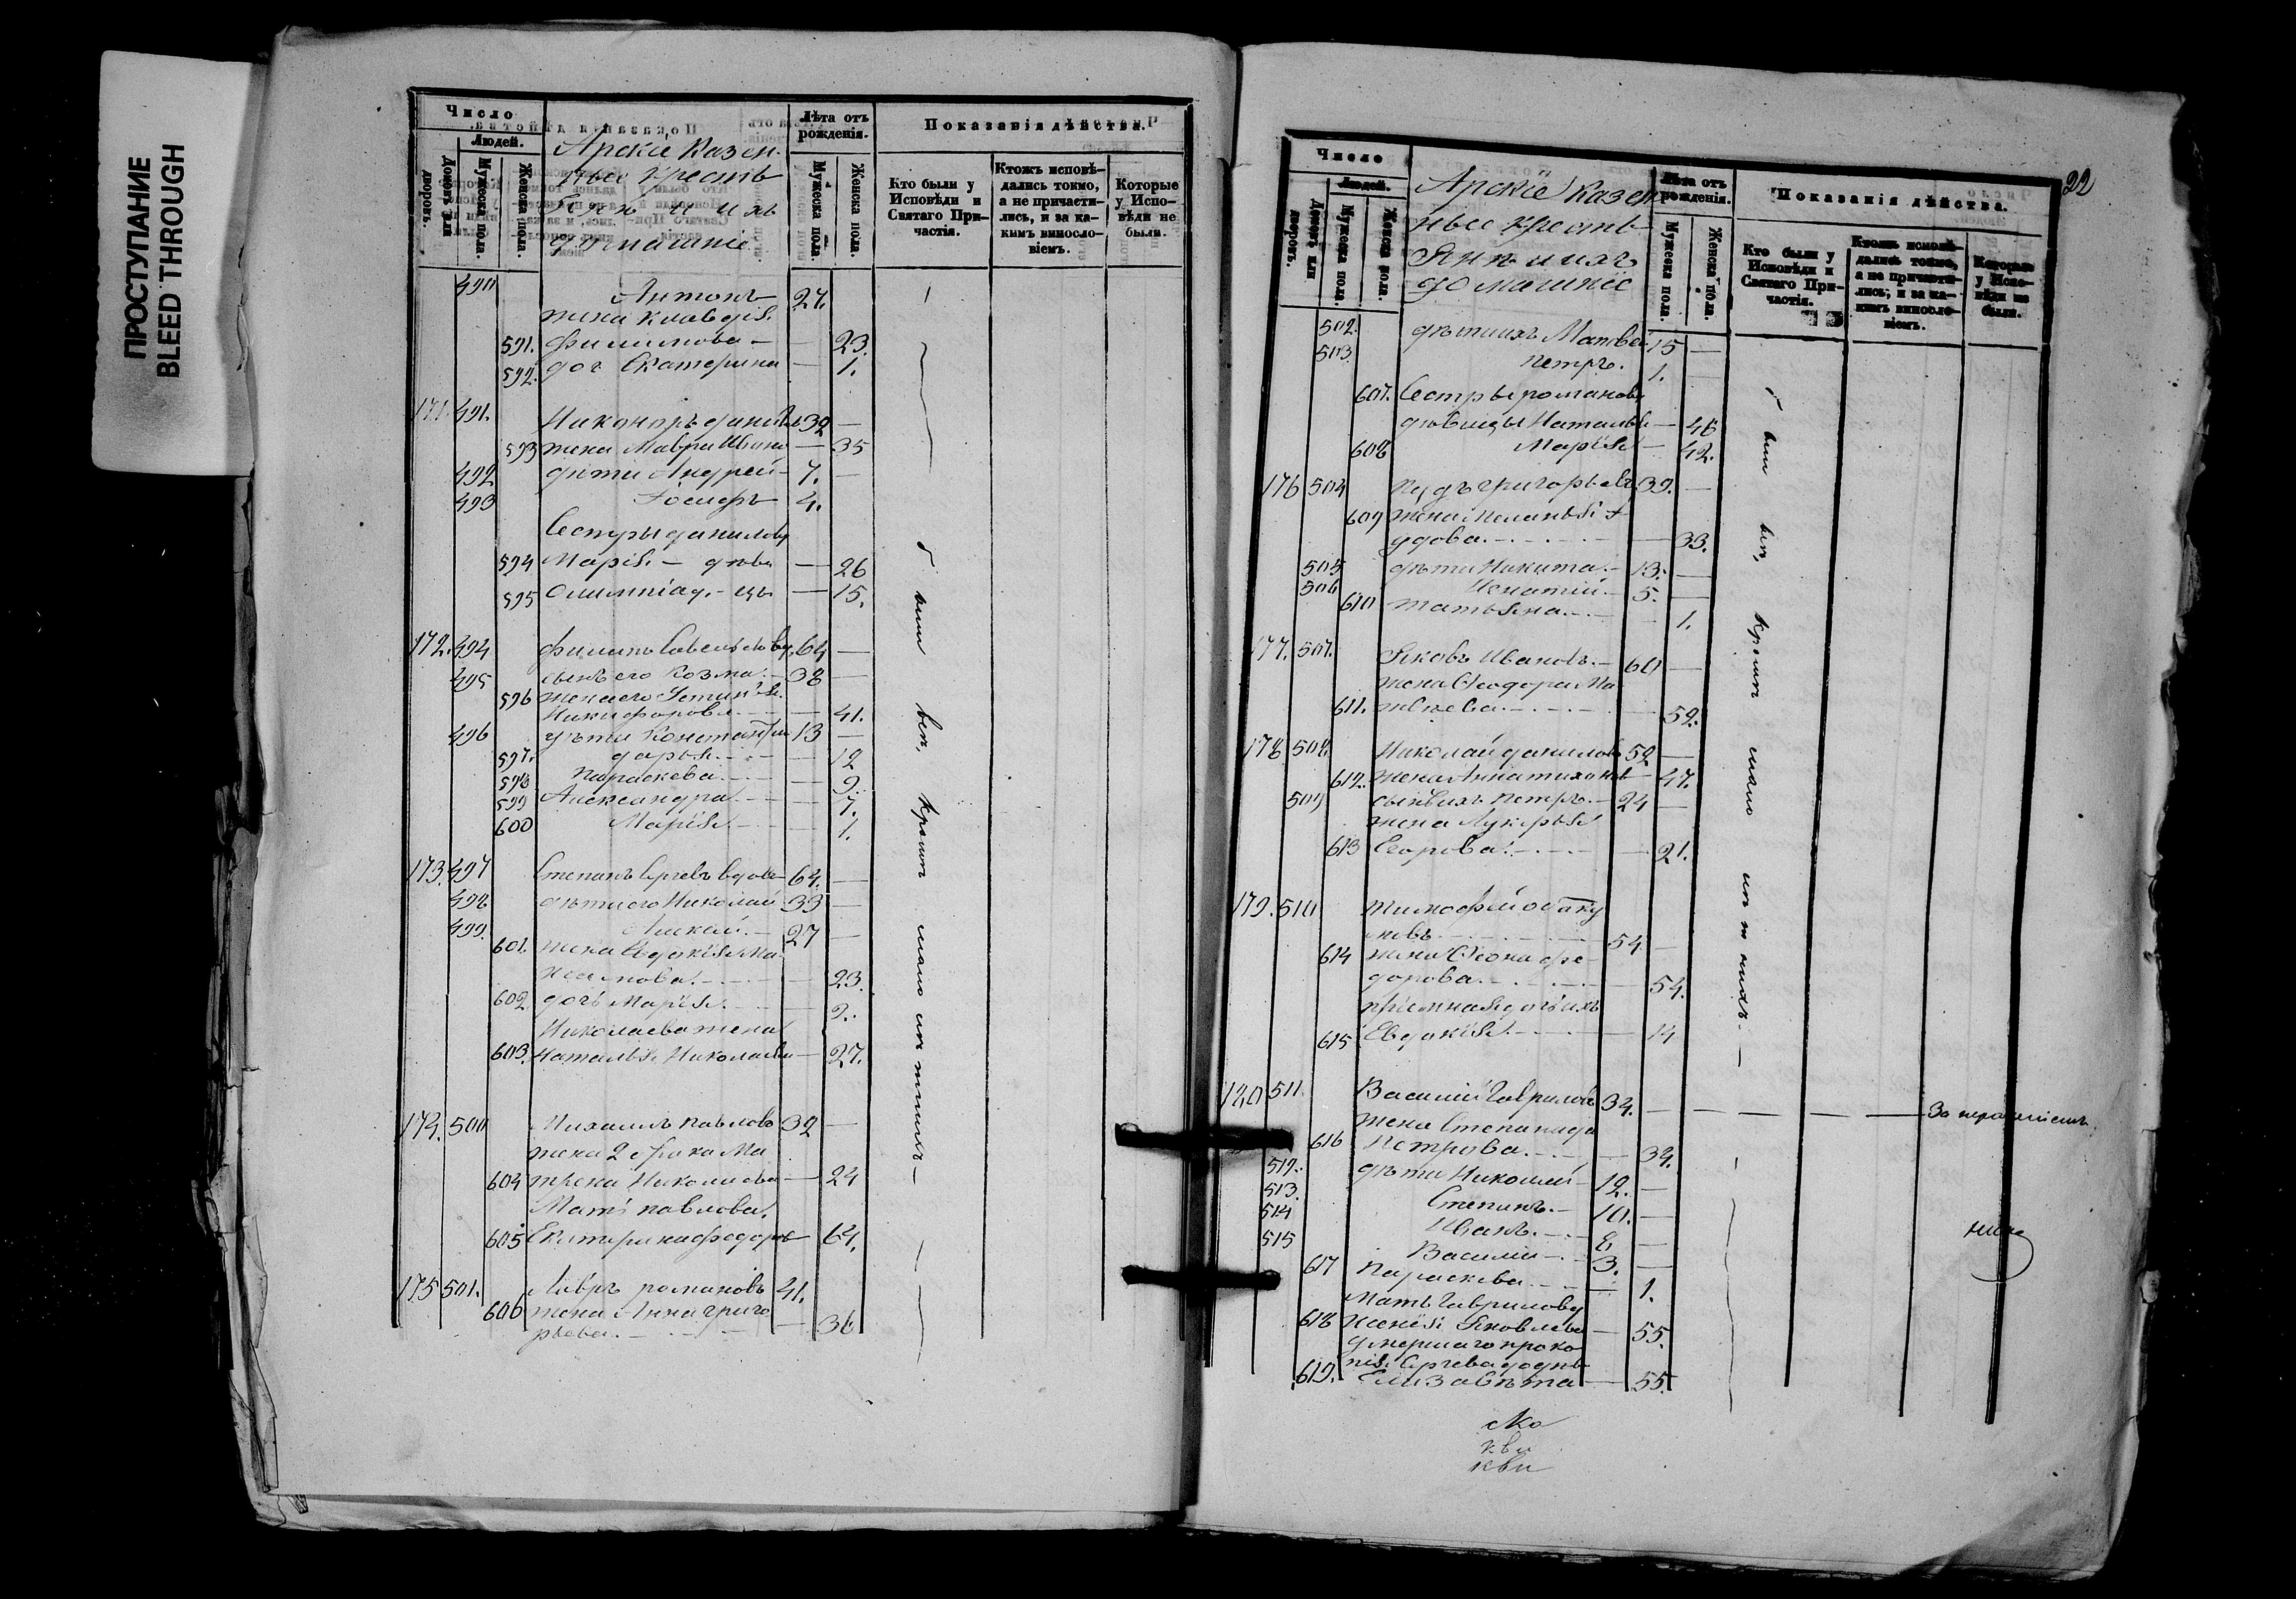 ПРОСТУПАНИЕ
BLEED THROUGH
Число
Людей.
Домовъ или дворовъ.
Мужеска пола.
Женска пола.
Арскіе Казен-
ные Кресть
Янѣ и ихъ
домашніе
Лѣта отъ рожденія.
Мужеска пола.
Женска пола.
Показанія дѣйства.
Кто были у Исповѣди и Святаго Причастія.
Ктожъ исповѣдались токмо, а не причастились, и за какимъ винословіемъ.
Которые у Исповѣди не были.
490 Антонъ 27.
жена Клавдія
591. Филипова — — 23.
592. доч Екатерина — 1.
171. 491. Никоноръ данил 32 —
593 жена Мавра Ивано — 35
492 дѣти Андрей 7. —
493 Іосифъ 4.
Сестры даниловы
594 Марія — дѣви — 26
595 Олимпіад. — цы — 15.
172. 494 Филипъ Савельевъ вд. 64 —
495 сынъ его Козма. — 38 —
596 жена его Устинія
Никифорова — — 41.
496 дѣти Константин 13 —
597. дарья. — — 12
598 Параскева. — — 9.
599 Александра. — — 7.
600 Марія. — — 1.
173. 497 Степанъ Сргевъ вдовъ 64. —
498 дѣти его Николай 33 —
499. Алексѣй. — 27 —
601. жена Евдокія Ма
ксимова. — — 23.
602. дочь Марія. — — 2.
Николаева жена
603. Наталья Николаева — 27.
174. 500 Михаилъ павловъ 32 —
жена 2 брака Ма
604 трена Николаева — 24
Мать павлова.
605 Екатерина федоров 64.
175 501. Лавръ романовъ 41.
606 жена Анна григо
рьева. — — 36
б ыли всѣ, кромѣ мало лѣтнихъ —
22
Число
Людей.
Домовъ или дворовъ.
Мужеска пола.
Женска пола.
Арскіе Казен
ные кресть
Янѣ и ихъ
домашніе
Лѣта отъ рожденія.
Мужеска пола.
Женска пола.
Показанія дѣйства.
Кто были у Исповѣди и Святаго Причастія.
Ктожъ исповѣдались токмо, а не причастились, и за какимъ винословіемъ.
Которые у Исповѣди не были.
502. дѣти ихъ Матвей 15 —
503. петръ. 1. —
607. Сестры романовы
дѣвицы Наталья — 46
608 Марія — 42.
176 504 Пудъ григорьевъ 39. —
609 жена Меланья
удова. — — 33.
505 дѣти Никита. — 13. —
506 Игнатій. — 5. —
610 татьяна. — — 1.
177. 507. Яковъ Ивановъ. — 60 —
жена Феодора Ма
611. твѣева. — — 52.
178 508. Николай даниловъ 52 —
612. жена Анна тихонов — 47.
509 сынъ ихъ петръ. — 24 —
жена Лукерья
613 Егорова. — — 21.
179. 510 Тимофей
новъ — 54. —
614 жена Фекла фе
дорова. — — 54.
пріемная дочь ихъ
615 Евдокія. — — 14
180 511. Василій Гавриловъ 34. — — — — — За нерадѣніемъ.
жена Степанида
616 Петрова. — — 34.
512. дѣти Николай 12. —
513. Степанъ. — 10. —
514 Иванъ. — 8. —
515 Василій — 3. —
617 Параскева — — 1.
Мать Гаврилову
618 Ксенія Яковлева — 55.
умершаго проко
пія Сргева
619. Елизавѣта — 55.
б ыли всѣ, кромѣ мало лѣтнихъ —